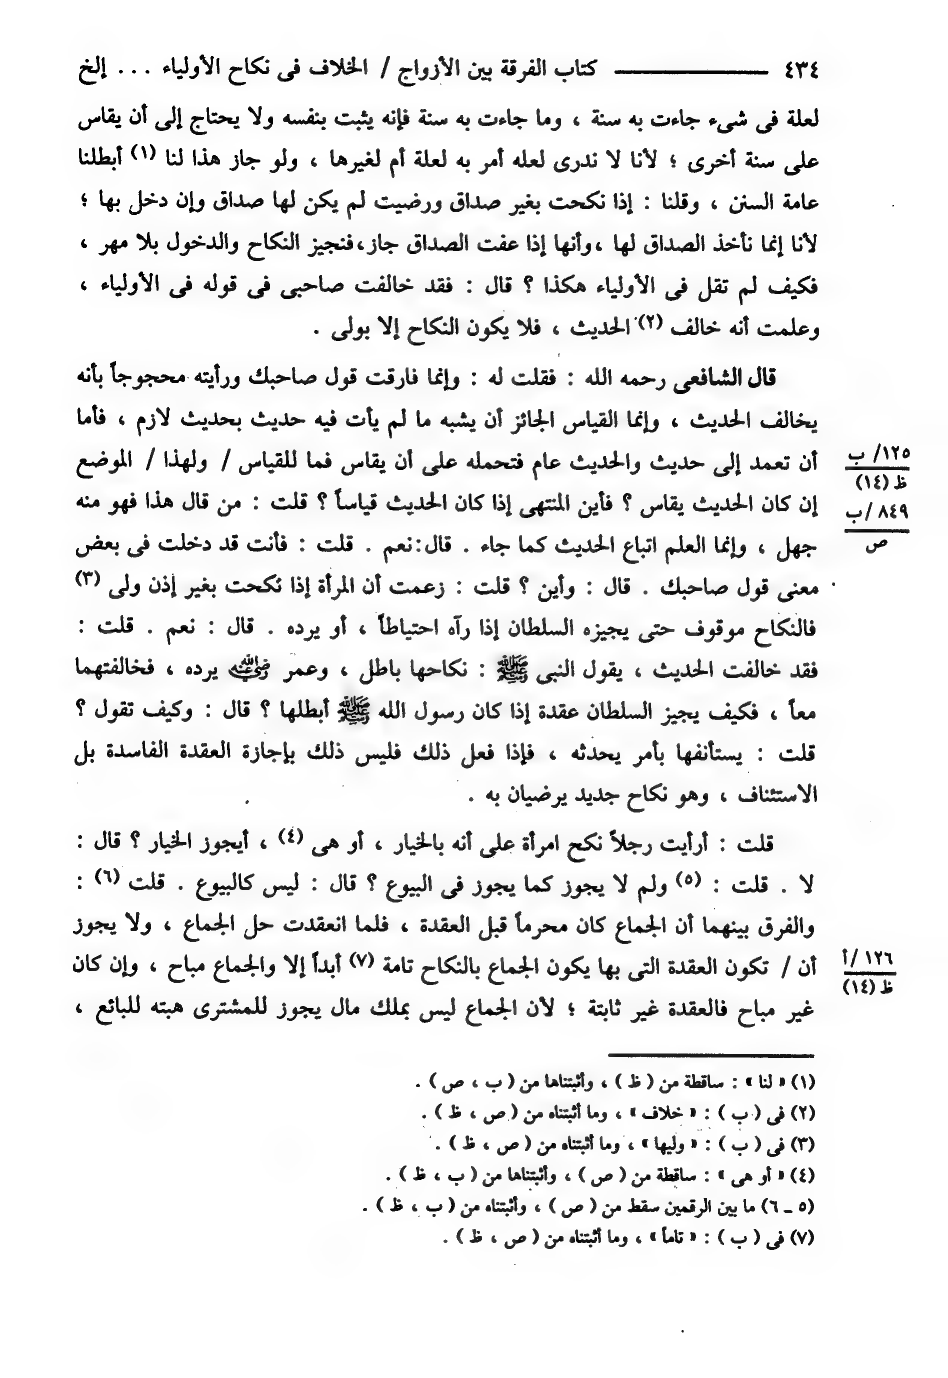 ٤٣٤ ــــــــــــ كتاب الفرقة بين الأزواج / الخلاف فى نكاح الأولياء ... إلخ
لعلة فى شىء جاءت به سنة ، وما جاءت به سنة فإنه يثبت بنفسه ولا يحتاج إلى أن يقاس
على سنة أخرى ؛ لأنا لا ندرى لعله أمر به لعلة أم لغيرها ، ولو جاز هذا لنا (١) أبطلنا
عامة السنن ، وقلنا : إذا نكحت بغير صداق ورضيت لم يكن لها صداق وإن دخل بها ؛
لأنا إنما نأخذ الصداق لها ،وأنها إذا عفت الصداق جاز،فنجيز النكاح والدخول بلا مهر ،
فكيف لم تقل فى الأولياء هكذا ؟ قال : فقد خالفت صاحبى فى قوله فى الأولياء ،
وعلمت أنه خالف (٢) الحديث ، فلا يكون النكاح إلا بولى .
قال الشافعى رحمه الله : فقلت له : وإنما فارقت قول صاحبك ورأيته محجوجاً بأنه
يخالف الحديث ، وإنما القياس الجائز أن يشبه ما لم يأت فيه حديث بحديث لازم ، فأما
أن تعمد إلى حديث والحديث عام فتحمله على أن يقاس فما للقياس / ولهذا / الموضع
١٢٥/ ب
ظ (١٤)
إن كان الحديث يقاس ؟ فأين المنتهى إذا كان الحديث قياساً ؟ قلت : من قال هذا فهو منه
٨٤٩ /ب
ص
جهل ، وإنما العلم اتباع الحديث كما جاء . قال:نعم . قلت : فأنت قد دخلت فى بعض
معنى قول صاحبك . قال : وأين ؟ قلت : زعمت أن المرأة إذا نكحت بغير إذن ولى (٣)
فالنكاح موقوف حتى يجيزه السلطان إذا رآه احتياطاً ، أو يرده . قال : نعم . قلت :
فقد خالفت الحديث ، يقول النبى ﷺ : نكاحها باطل ، وعمر رضي الله عنه يرده ، فخالفتهما
معاً ، فكيف يجيز السلطان عقدة إذا كان رسول الله ﷺ أبطلها ؟ قال : وكيف تقول ؟
قلت : يستأنفها بأمر يحدثه ، فإذا فعل ذلك فليس ذلك بإجازة العقدة الفاسدة بل
الاستئناف ، وهو نكاح جديد يرضيان به .
قلت : أرأيت رجلاً نكح امرأة على أنه بالخيار ، أو هى (٤) ، أيجوز الخيار ؟ قال :
لا . قلت : (٥) ولم لا يجوز كما يجوز فى البيوع ؟ قال : ليس كالبيوع . قلت (٦) :
والفرق بينهما أن الجماع كان محرماً قبل العقدة ، فلما انعقدت حل الجماع ، ولا يجوز
أن / تكون العقدة التى بها يكون الجماع بالنكاح تامة (٧) أبداً إلا والجماع مباح ، وإن كان
١٢٦ /أ
ظ (١٤)
غير مباح فالعقدة غير ثابتة ؛ لأن الجماع ليس بملك مال يجوز للمشترى هبته للبائع ،
(١) « لنا » : ساقطة من ( ظ ) ، وأثبتناها من ( ب ، ص ) .
(٢) فى ( ب ) : « خلاف » ، وما أثبتناه من ( ص ، ظ ) .
(٣) فى ( ب ) : « وليها » ، وما أثبتناه من ( ص ، ظ ) .
(٤) « أو هى » : ساقطة من ( ص ) ، وأثبتناها من ( ب ، ظ ) .
(٥ ـ ٦) ما بين الرقمين سقط من ( ص ) ، وأثبتناه من ( ب ، ظ ) .
(٧) فى ( ب ) : « تاماً » ، وما أثبتناه من ( ص ، ظ ) .